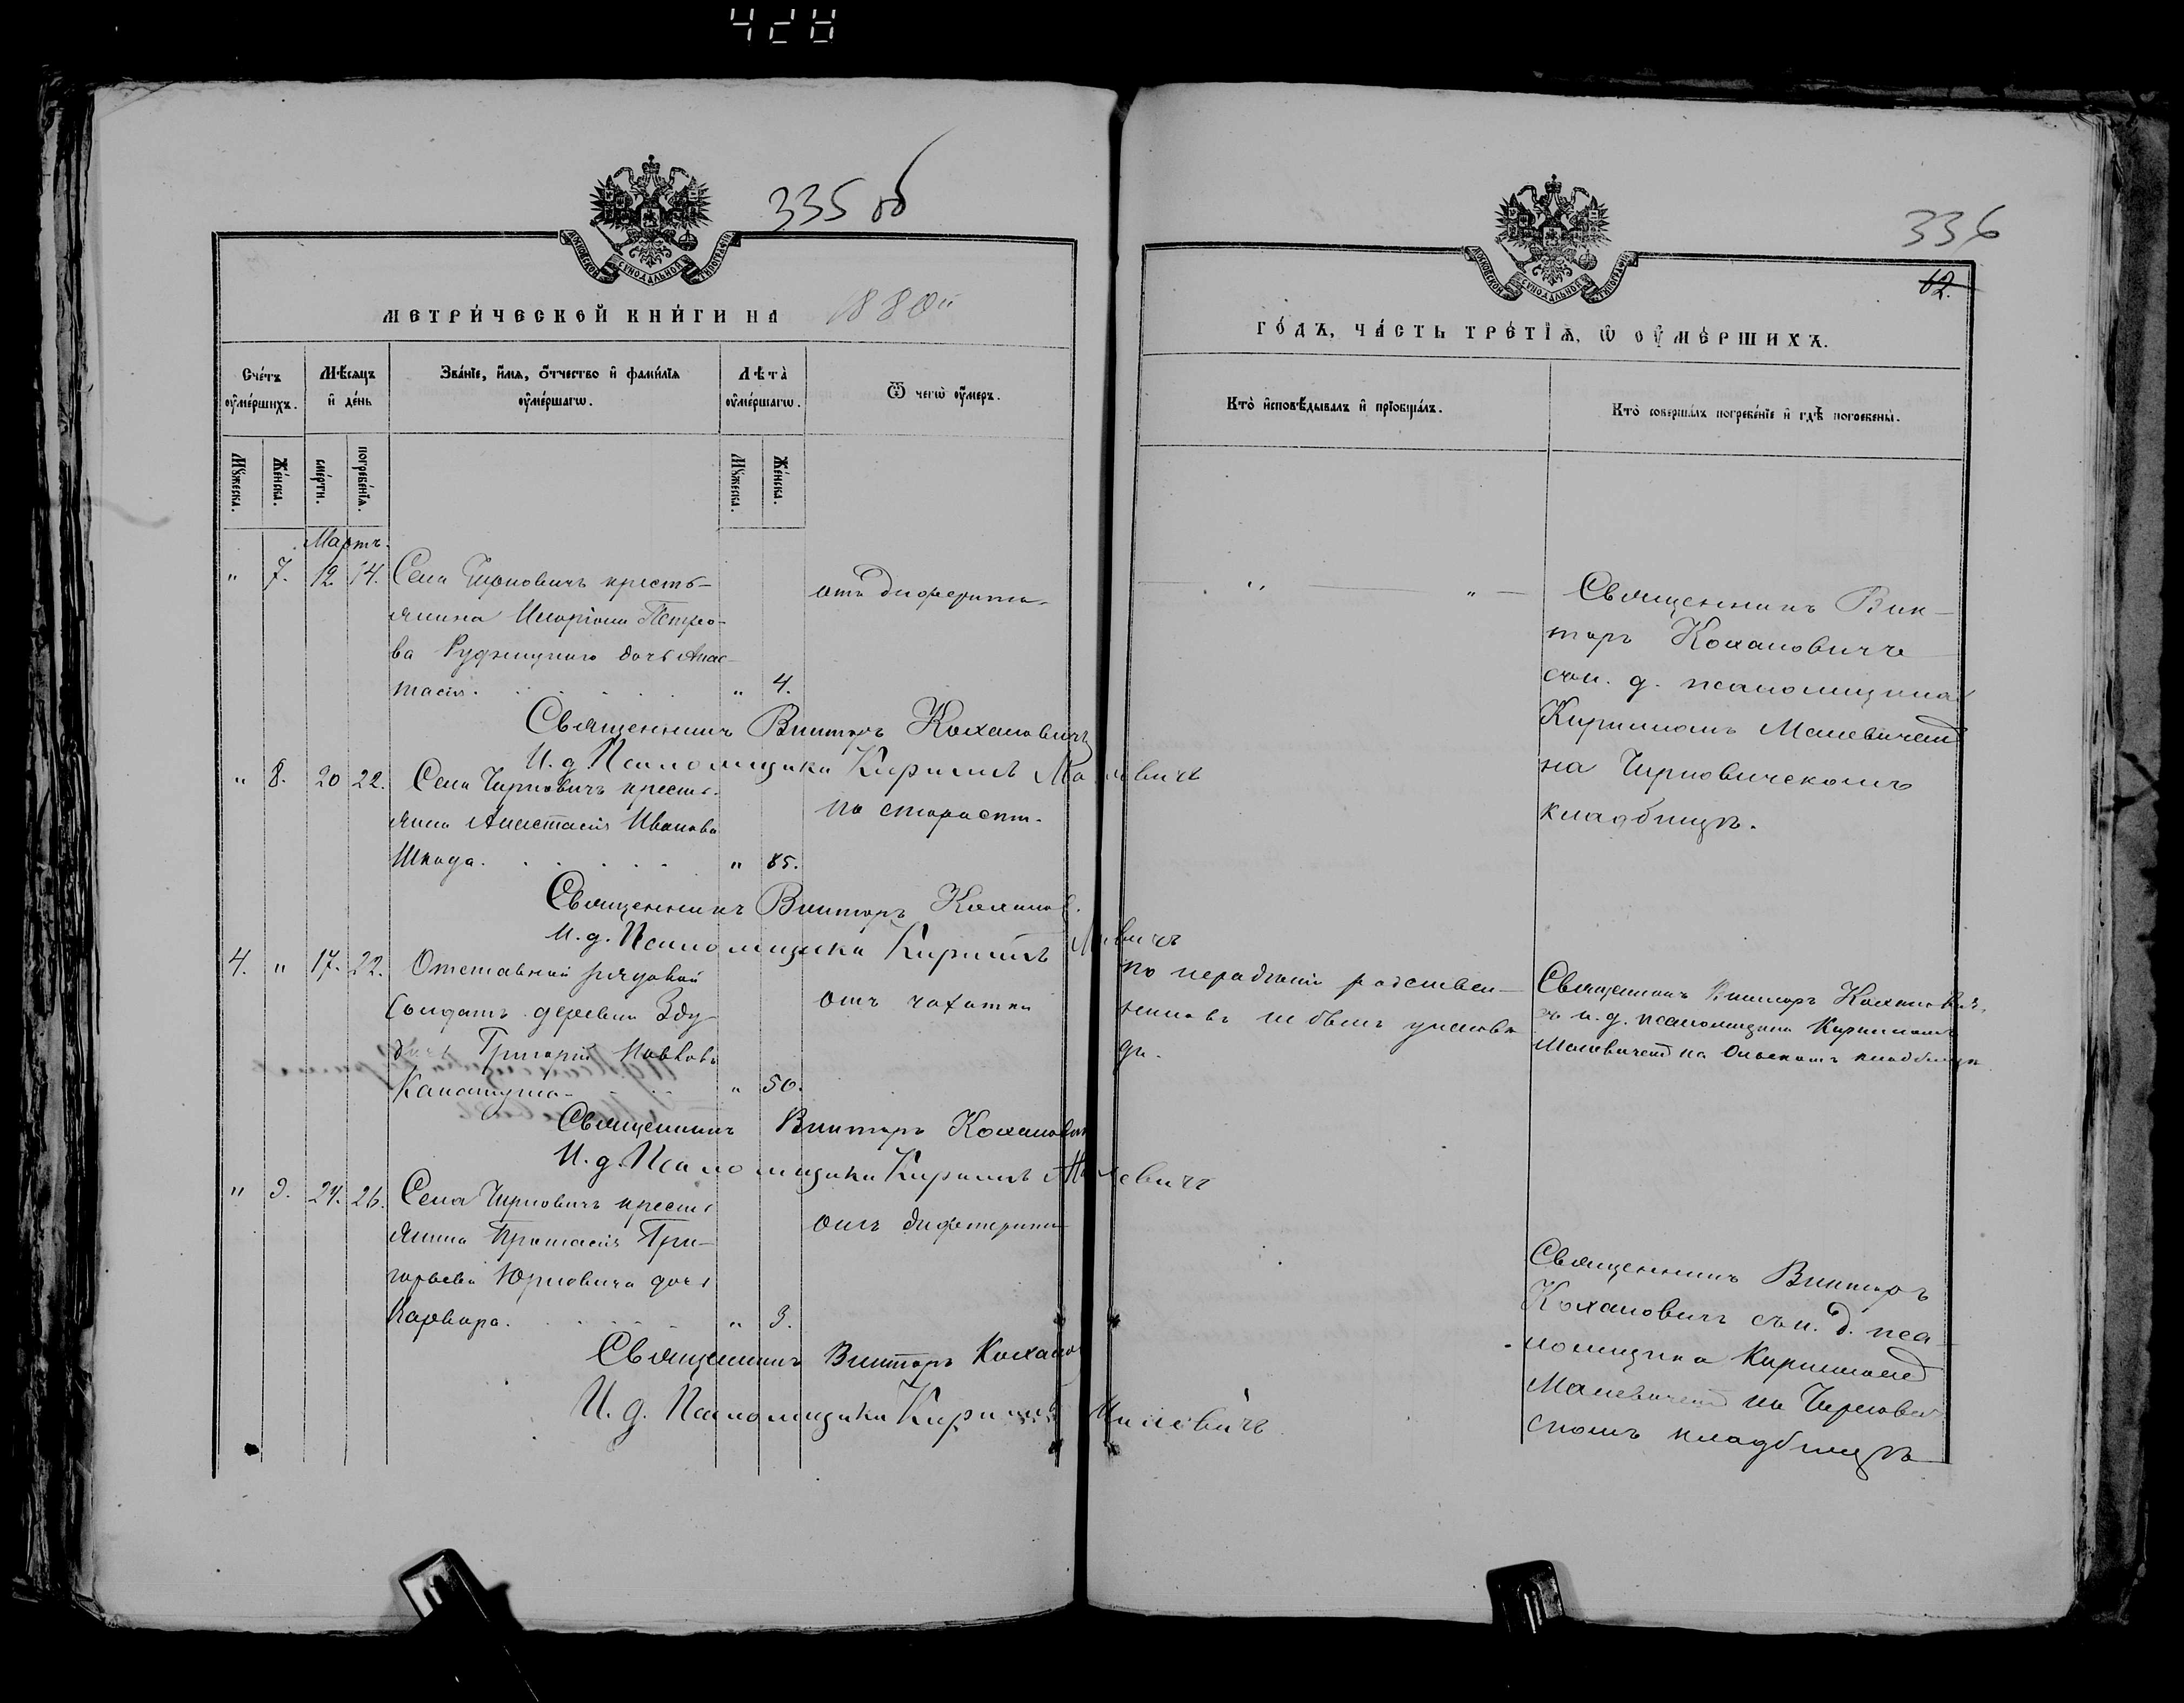 428
335 об
МЕТРИ́ЧЕСКОЙ КНИ́ГИ НА 1880й
Сче́тъ оу҆ме́ршихъ.
Мѣ́сяцъ и҆ де́нь
Зва́нїе, и҆́мѧ, ѻ҆́тчество и҆ фами́лїѧ оу҆ме́ршагѡ.
Лѣ̀та оу҆ме́ршагѡ.
Ѿ чегѡ̀ оу҆́меръ.
Мꙋ́жеска.
Же́нска.
сме́рти.
погребе́нїѧ.
Мꙋ́жеска.
Же́нска.
Мартъ.
" 7. 12 14. Села Чирновичъ кресть-
янина Илларіона Петро-
ва Рудницкаго дочь Анас-
тасія. " 4.
отъ дифтерита.
Священникъ Викторъ Кохановичъ
И. д. Псаломщика Кириллъ Малевичъ
" 8. 20 22. Села Чирновичъ кресть-
янка Анастасія Иванова
Шкода. " 85.
по старости.
Священникъ Викторъ Коханов.
И. д. Псаломщика Кириллъ Малевичъ
4. " 17. 22. Отставной рядовой
Солдатъ деревни Зду-
дичъ Григорій
" 50.
отъ чахотки
Священникъ Викторъ Коханович
И. д. Псаломщика Кириллъ Малевичъ
" 9. 24. 26. Села Чирновичъ кресть
янина Протасія Гри-
горьева Юрковича дочь
Варвара. " 3.
отъ дифтерита
Священникъ Викторъ Кохано
И. д. Псаломщика Кириллъ Малевичъ
336
62.
ГО́ДЪ, ЧА́СТЬ ТРЕ́ТЇѦ, Ѡ҆ ОУ҆МЕ́РШИХЪ.
Кто̀ и҆сповѣ́дывалъ и҆ прїобща́лъ.
Кто̀ соверша́лъ погребе́нїе и҆ гдѣ̀ погребены̀.
" "
Священникъ Вик-
торъ Кохановичъ
съ и. д. псаломщика
Кирилломъ Малевичемъ
на Чирновичскомъ
кладбищѣ.
по нерадѣнію родствен-
никовъ не былъ
Священникъ Викторъ Кохановичъ
съ и. д. псаломщика Кирилломъ
Малевичемъ на кладбищѣ
Священникъ Викторъ
Кохановичъ съ и. д. пса-
ломщика Кирилломъ
Малевичемъ на Чирнович
скомъ кладбищѣ